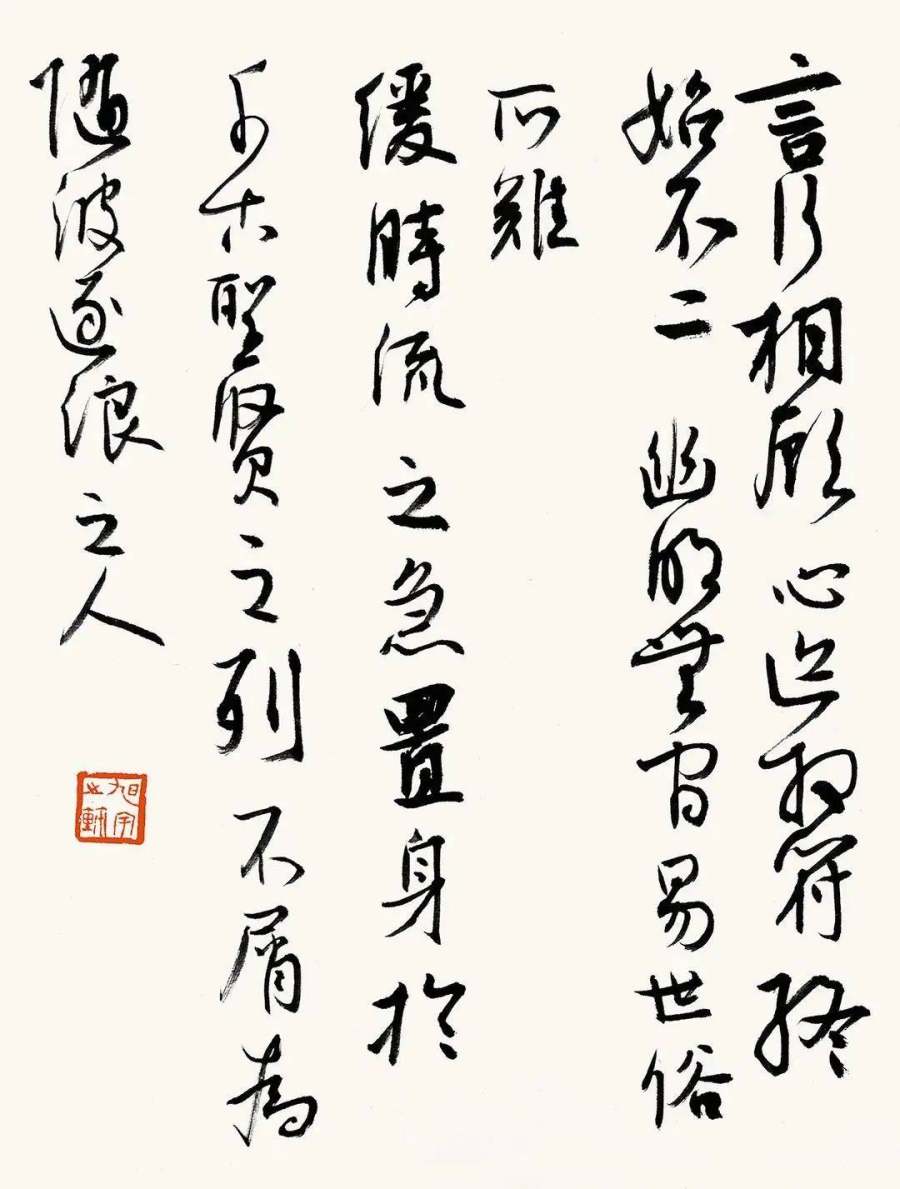 言行相顧心迹相符終
始不二幽明無間易世俗
所難
緩時流之急置身於
千古聖賢之列不屑為
隨波逐浪之人
旭宇之